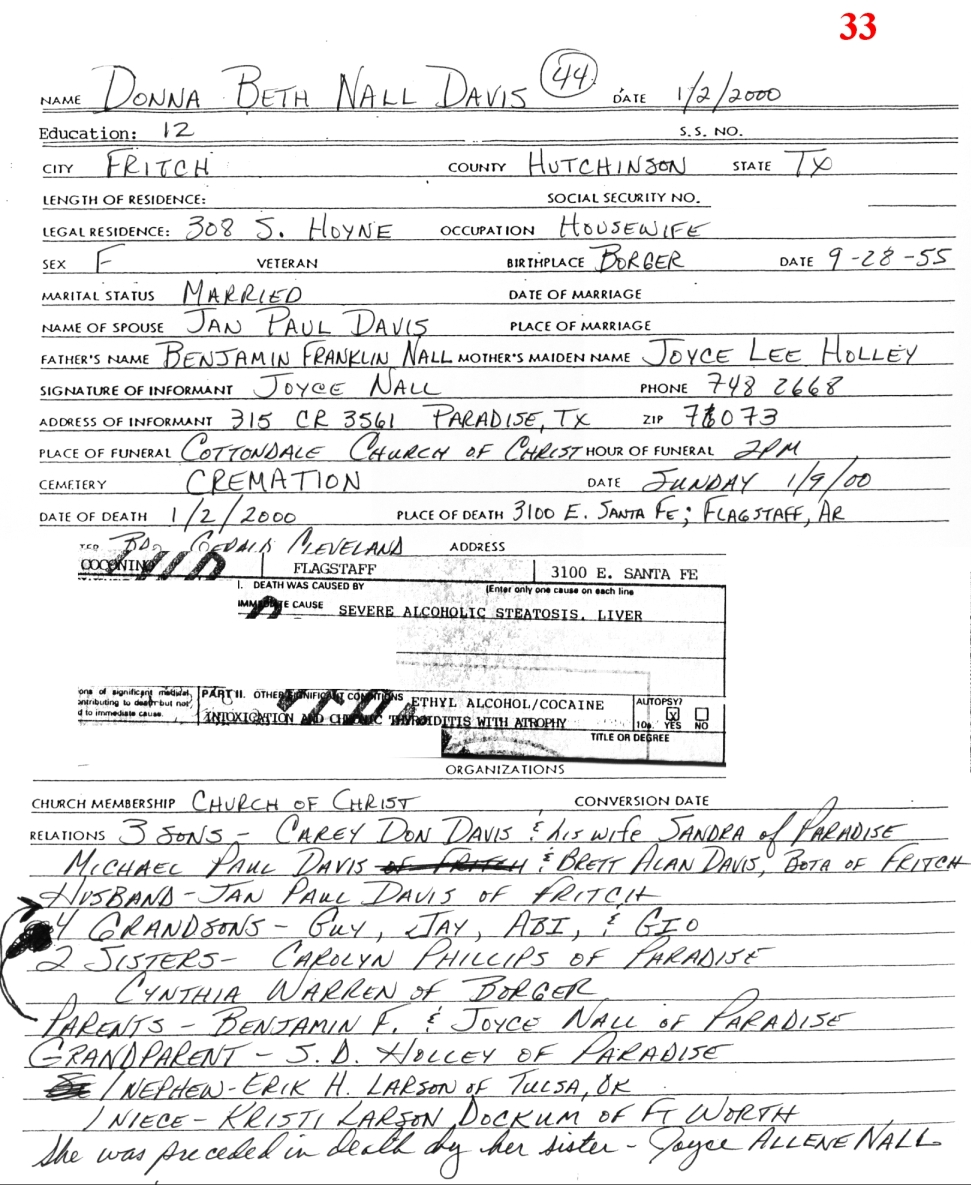 33
NAME DONNA BETH NALL DAVIS 44 DATE 1/2/2000
Education: 12 S.S. NO.
CITY FRITCH COUNTY HUTCHINSON STATE TX
LENGTH OF RESIDENCE: SOCIAL SECURITY NO.
LEGAL RESIDENCE: 308 S. HOYNE OCCUPATION HOUSEWIFE
SEX F VETERAN BIRTHPLACE BORGER DATE 9-28-55
MARITAL STATUS MARRIED DATE OF MARRIAGE
NAME OF SPOUSE JAN PAUL DAVIS PLACE OF MARRIAGE
FATHER'S NAME BENJAMIN FRANKLIN NALL MOTHER'S MAIDEN NAME JOYCE LEE HOLLEY
SIGNATURE OF INFORMANT JOYCE NALL PHONE 748 2668
ADDRESS OF INFORMANT 315 CR 3561 PARADISE, TX ZIP 76073
PLACE OF FUNERAL COTTONDALE CHURCH OF CHRIST HOUR OF FUNERAL 2PM
CEMETERY CREMATION DATE SUNDAY 1/9/00
DATE OF DEATH 1/2/2000 PLACE OF DEATH 3100 E. SANTA FE; FLAGSTAFF, AR
GERALD CLEVELAND ADDRESS
COCONINO FLAGSTAFF 3100 E. SANTA FE
I. DEATH WAS CAUSED BY (Enter only one cause on each line
IMMEDIATE CAUSE SEVERE ALCOHOLIC STEATOSIS, LIVER
ons of significant medical PART II. OTHER SIGNIFICANT CONDITIONS ETHYL ALCOHOL/COCAINE AUTOPSY?
ntributing to death but not INTOXICATION AND CHRONIC THYROIDITIS WITH ATROPHY X YES NO
d to immediate cause.
TITLE OR DEGREE
ORGANIZATIONS
CHURCH MEMBERSHIP CHURCH OF CHRIST CONVERSION DATE
RELATIONS 3 SONS - CAREY DON DAVIS & his wife SANDRA of PARADISE
MICHAEL PAUL DAVIS of FRITCH & BRETT ALAN DAVIS, BOTA OF FRITCH
HUSBAND - JAN PAUL DAVIS OF FRITCH
4 GRANDSONS - GUY, JAY, ABI, & GIO
2 SISTERS - CAROLYN PHILLIPS OF PARADISE
CYNTHIA WARREN OF BORGER
PARENTS - BENJAMIN F. & JOYCE NALL OF PARADISE
GRANDPARENT - S. D. HOLLEY OF PARADISE
1 NEPHEW - ERIK H. LARSON OF TULSA, OK
1 NIECE - KRISTI LARSON DOCKUM OF FT WORTH
She was preceded in death by her sister - Joyce ALLENE NALL